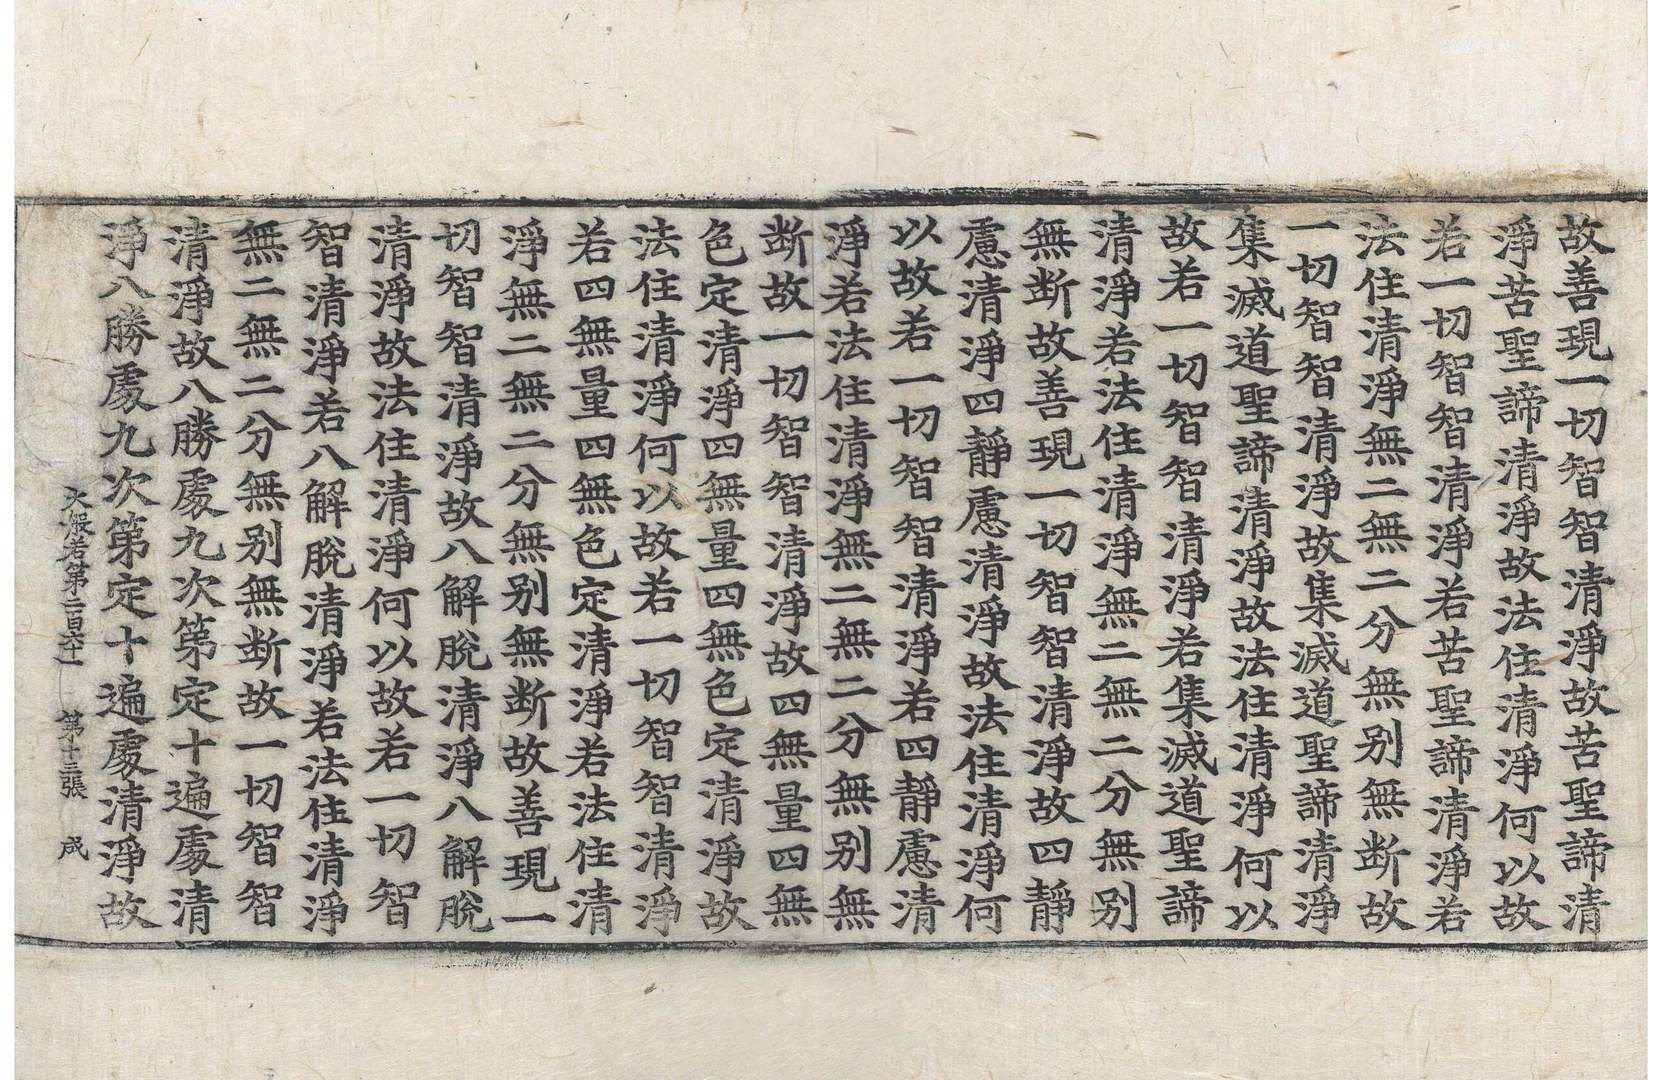 故善現一切智智清淨故苦聖諦清
淨苦聖諦清淨故法住清淨何以故
若一切智智清淨若苦聖諦清淨若
法住清淨無二無二分無別無斷故
一切智智清淨故集滅道聖諦清淨
集滅道聖諦清淨故法住清淨何以
故若一切智智清淨若集滅道聖諦
清淨若法住清淨無二無二分無別
無斷故善現一切智智清淨故四靜
慮清淨四靜慮清淨故法住清淨何
以故若一切智智清淨若四靜慮清
淨若法住清淨無二無二分無別無
斷故一切智智清淨故四無量四無
色定清淨四無量四無色定清淨故
法住清淨何以故若一切智智清淨
若四無量四無色定清淨若法住清
淨無二無二分無別無斷故善現一
切智智清淨故八解脫清淨八解脫
清淨故法住清淨何以故若一切智
智清淨若八解脫清淨若法住清淨
無二無二分無別無斷故一切智智
清淨故八勝處九次第定十遍處清
淨八勝處九次第定十遍處清淨故
大般若第二百六十一 第十三張 成